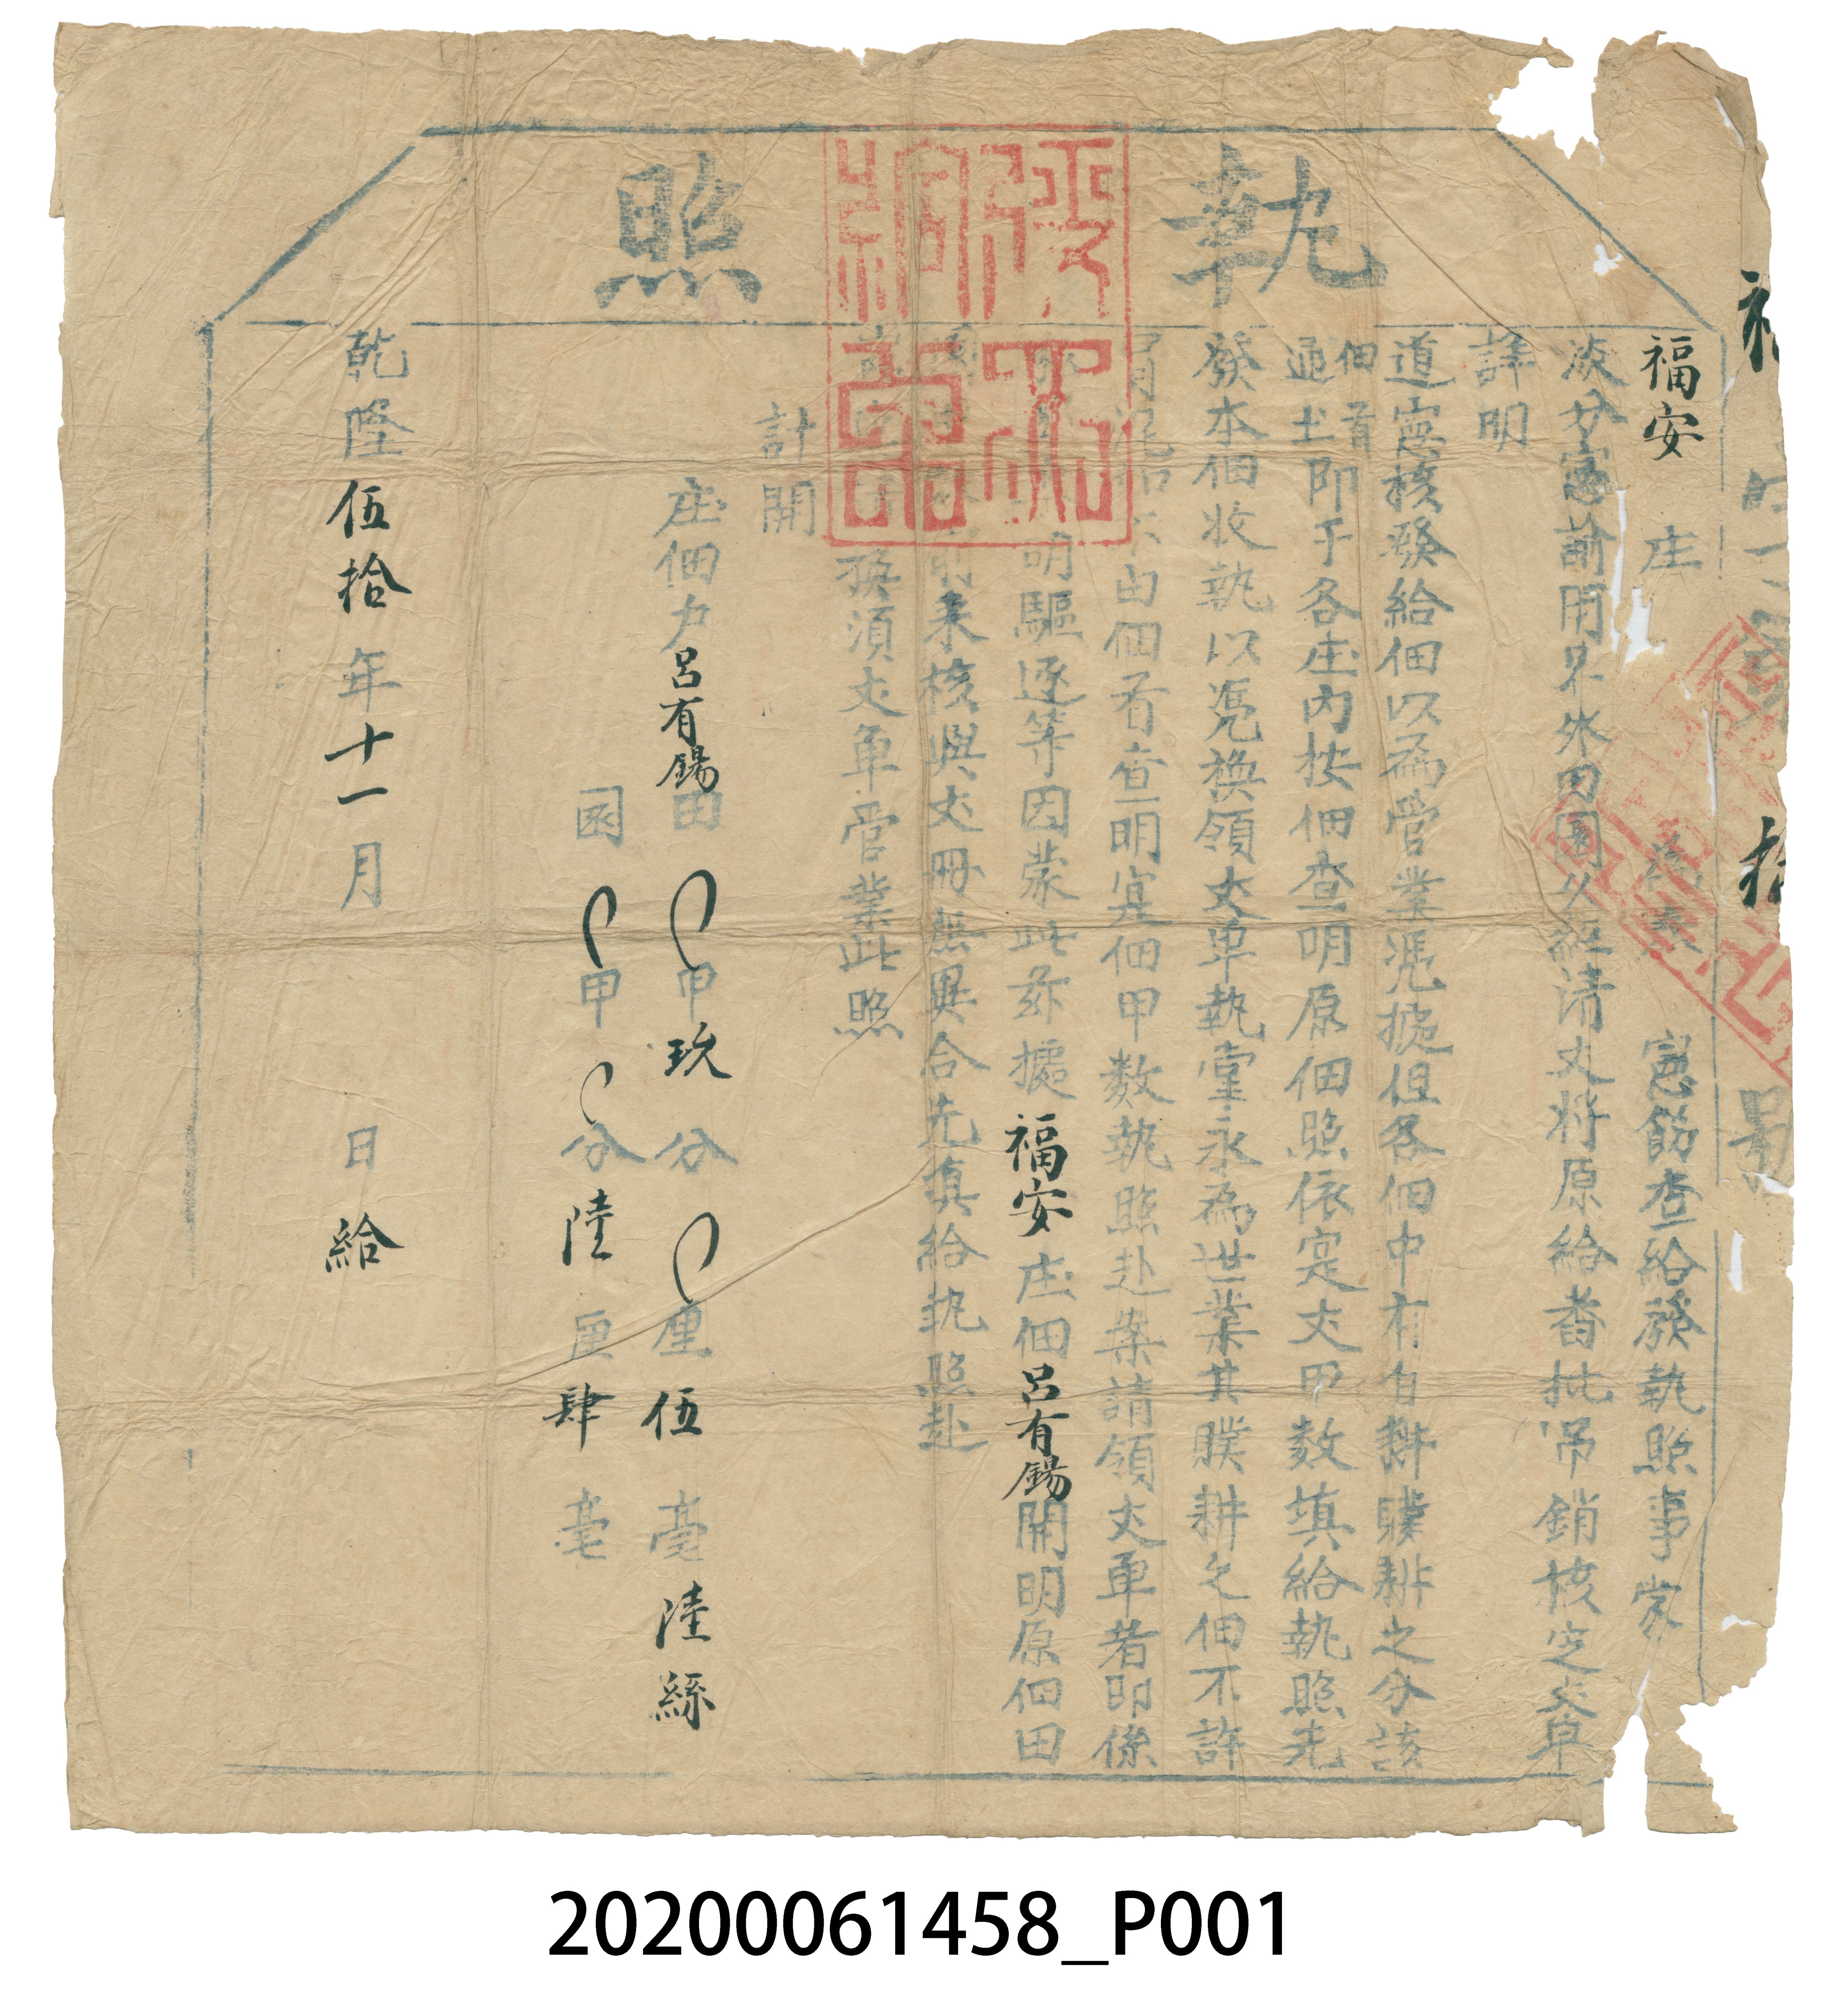 執照
福安庄 為奉 憲飭查給發執照事蒙
淡分憲諭開界外田園久經清丈將原給番批吊銷核定丈单
詳明
道憲核發給佃以為管業憑據但各佃中有自耕贌耕之分該
佃首
通土即于各庄内按佃查明原佃照依寔丈甲数填給執照先
發本佃收執以凴換領丈单執掌永為世業其贌耕之佃不許
由佃首查明寔佃甲数執照赴案請領丈单者即係
明驅逐等因蒙此茲據福安庄佃呂有錫開明原佃田
前来核與丈冊無異合先填給執照赴
換領丈单管業此照
計開
庄佃户呂有錫田 甲玖分 厘伍毫陸絲
園 甲 分陸厘肆毫
乾隆伍拾年十一月 日給
20200061458_P001